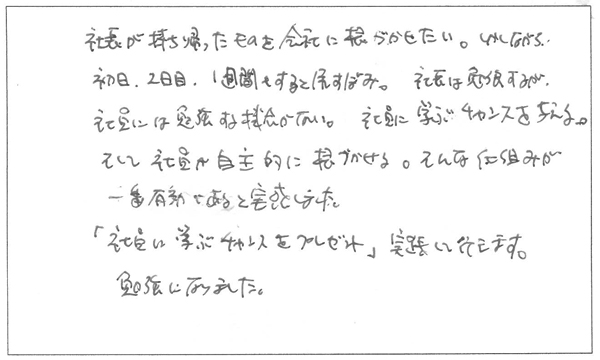 社長が持ち帰ったものを会社に根づかせたい。しかしながら、
初日、2日目、1週間もすると尻すぼみ。社長は勉強するが、
社員には勉強する機会がない。社員に学ぶチャンスを与える。
そして社員が自主的に根づかせる。そんな仕組みが
一番有効であると実感しました
「社員に学ぶチャンスをプレゼント」実践して行きます。
勉強になりました。